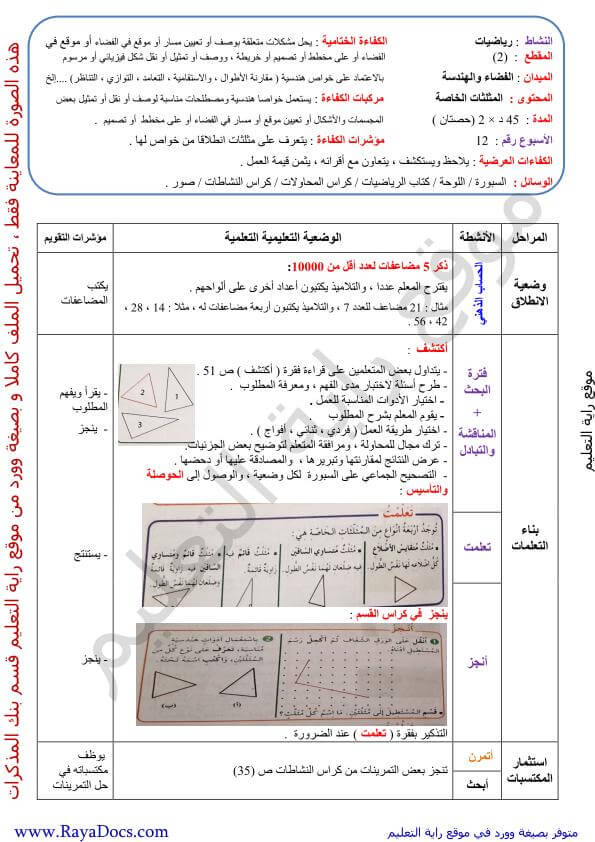 النشاط : رياضيات
المقطع : (2)
الميدان : الفضاء والهندسة
المحتوى : المثلثات الخاصة
المدة : 45 د × 2 (حصتان )
الأسبوع رقم : 12
الكفاءة الختامية : يحل مشكلات متعلقة بوصف أو تعيين مسار أو موقع في الفضاء أو موقع في
الفضاء أو على مخطط أو تصميم أو خريطة ، ووصف أو تمثيل أو نقل شكل فيزيائي أو مرسوم
بالاعتماد على خواص هندسية ( مقارنة الأطوال ، والاستقامية ، التعامد ، التوازي ، التناظر) ....إلخ
مركبات الكفاءة : يستعمل خواصا هندسية ومصطلحات مناسبة لوصف أو نقل أو تمثيل بعض
المجسمات والأشكال أو تعيين موقع أو مسار في الفضاء أو على مخطط أو تصميم .
مؤشرات الكفاءة : يتعرف على مثلثات انطلاقا من خواص لها .
الكفاءات العرضية : يلاحظ ويستكشف ، يتعاون مع أقرانه ، يثمن قيمة العمل .
الوسائل : السبورة / اللوحة / كتاب الرياضيات / كراس المحاولات / كراس النشاطات / صور .
المراحل
الأنشطة
الوضعية التعليمية التعلمية
مؤشرات التقويم
وضعية
الانطلاق
الحساب الذهني
ذكر 5 مضاعفات لعدد أقل من 10000:
يقترح المعلم عددا ، والتلاميذ يكتبون أعداد أخرى على ألواحهم .
مثال : 21 مضاعف للعدد 7 ، والتلاميذ يكتبون أربعة مضاعفات له ، مثلا : 14 ، 28 ،
42 ، 56 .
يكتب
المضاعفات
بناء
التعلمات
فترة
البحث
+
المناقشة
والتبادل
أكتشف :
- يتداول بعض المتعلمين على قراءة فقرة ( أكتشف ) ص 51 .
- طرح أسئلة لاختبار مدى الفهم ، ومعرفة المطلوب .
- اختيار الأدوات المناسبة للعمل .
- يقوم المعلم بشرح المطلوب .
- اختيار طريقة العمل ( فردي ، ثنائي ، أفواج ) .
- ترك مجال للمحاولة ، ومرافقة المتعلم لتوضيح بعض الجزئيات.
- عرض النتائج لمقارنتها وتبريرها ، والمصادقة عليها أو دحضها .
- التصحيح الجماعي على السبورة لكل وضعية ، والوصول إلى الحوصلة
والتأسيس :
1
2
3
- يقرأ ويفهم
المطلوب
- ينجز
تعلمت
تَعَلَّمْتُ
تُوجَدُ أَرْبَعَةُ أَنْوَاعٍ مِنَ الْمُثَلَّثَاتِ الْخَاصَّةِ هِيَ:
• مُثَلَّثٌ مُتَقَايِسُ الْأَضْلَاعِ
كُلُّ أَضْلَاعِهِ لَهَا نَفْسُ الطُّولِ.
• مُثَلَّثٌ مُتَسَاوِي السَّاقَيْنِ
فِيهِ ضِلْعَانِ لَهُمَا نَفْسُ الطُّولِ.
• مُثَلَّثٌ قَائِمٌ فِيهِ
زَاوِيَةٌ قَائِمَةٌ.
• مُثَلَّثٌ قَائِمٌ وَمُتَسَاوِي
السَّاقَيْنِ فِيهِ زَاوِيَةٌ قَائِمَةٌ
وَضِلْعَانِ لَهُمَا نَفْسُ الطُّولِ.
- يستنتج
أنجز
ينجز في كراس القسم :
أُنْجِزُ
1 أَنْقُلُ عَلَى الْوَرَقِ الشَّفَّافِ ثُمَّ أُكْمِلُ رَسْمَ
الْمُسْتَطِيلِ أَدْنَاهُ.
• قَسِّمِ الْمُسْتَطِيلَ إِلَى مُثَلَّثَيْنِ. مَا اسْمُ كُلِّ مُثَلَّثٍ؟
2 بِاسْتِعْمَالِ أَدَوَاتٍ هَنْدَسِيَّةٍ
مُنَاسِبَةٍ، تَعَرَّفْ عَلَى نَوْعِ كُلٍّ مِنَ
الْمُثَلَّثَيْنِ، وَاكْتُبِ اسْمَهُ تَحْتَهُ.
(أ)
(ب)
التذكير بفقرة ( تعلمت ) عند الضرورة .
- ينجز
استثمار
المكتسبات
أتمرن
أبحث
تنجز بعض التمرينات من كراس النشاطات ص (35)
يوظف
مكتسباته في
حل التمرينات
هذه الصورة للمعاينة فقط ، تحميل الملف كاملا و بصيغة وورد من موقع راية التعليم قسم بنك المذكرات
موقع راية التعليم
موقع راية التعليم
www.RayaDocs.com
متوفر بصيغة وورد في موقع راية التعليم